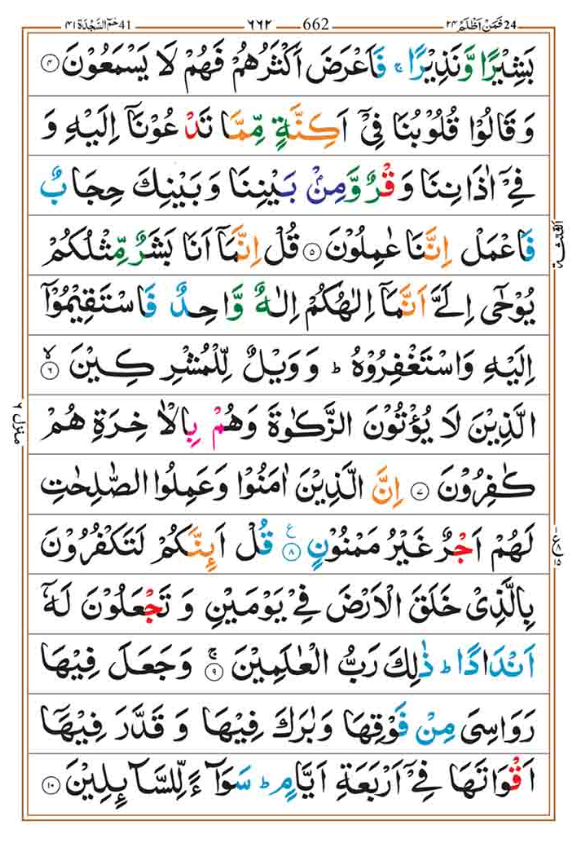 41 حٰمٓ السَّجْدَة ٤١ ٦٦٢ 662 24 فَمَنْ اَظْلَمُ ٢٤
بَشِيْرًا وَّنَذِيْرًا ۚ فَاَعْرَضَ اَكْثَرُهُمْ فَهُمْ لَا يَسْمَعُوْنَ ۴
وَ قَالُوْا قُلُوْبُنَا فِىْۤ اَكِنَّةٍ مِّمَّا تَدْعُوْنَاۤ اِلَيْهِ وَ
فِىْۤ اٰذَانِنَا وَقْرٌ وَّمِنْۢ بَيْنِنَا وَ بَيْنِكَ حِجَابٌ
فَاعْمَلْ اِنَّنَا عٰمِلُوْنَ ۵ قُلْ اِنَّمَاۤ اَنَا بَشَرٌ مِّثْلُكُمْ
يُوْحٰٓى اِلَىَّ اَنَّمَاۤ اِلٰهُكُمْ اِلٰهٌ وَّاحِدٌ فَاسْتَقِيْمُوْۤا
اِلَيْهِ وَاسْتَغْفِرُوْهُ ؕ وَ وَيْلٌ لِّلْمُشْرِكِيْنَ ۙ ۶
الَّذِيْنَ لَا يُؤْتُوْنَ الزَّكٰوةَ وَهُمْ بِالْاٰخِرَةِ هُمْ
كٰفِرُوْنَ ۷ اِنَّ الَّذِيْنَ اٰمَنُوْا وَعَمِلُوا الصّٰلِحٰتِ
لَهُمْ اَجْرٌ غَيْرُ مَمْنُوْنٍ ۸ ع قُلْ اَئِنَّكُمْ لَتَكْفُرُوْنَ
بِالَّذِىْ خَلَقَ الْاَرْضَ فِىْ يَوْمَيْنِ وَ تَجْعَلُوْنَ لَهٗۤ
اَنْدَادًا ؕ ذٰلِكَ رَبُّ الْعٰلَمِيْنَ ۚ ۹ وَجَعَلَ فِيْهَا
رَوَاسِىَ مِنْ فَوْقِهَا وَبٰرَكَ فِيْهَا وَ قَدَّرَ فِيْهَاۤ
اَقْوَاتَهَا فِىْۤ اَرْبَعَةِ اَيَّامٍ ؕ سَوَآءً لِّلسَّآئِلِيْنَ ۱۰
الثلثة
منزل ٦